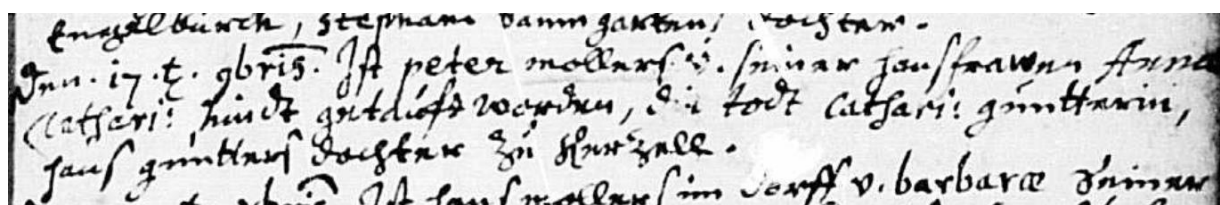 Engelburch, Stephani Baumgarten dochter.
Den. 17. t. 9bris. Ist peter mollers v. seiner hausfrawen Anna
Cathari: kindt getaufft worden, die todt Cathari: guntterin,
hans guntters dochter zu Kerzell.
9bris Ist hans mollers im dorff v. barbaræ seiner